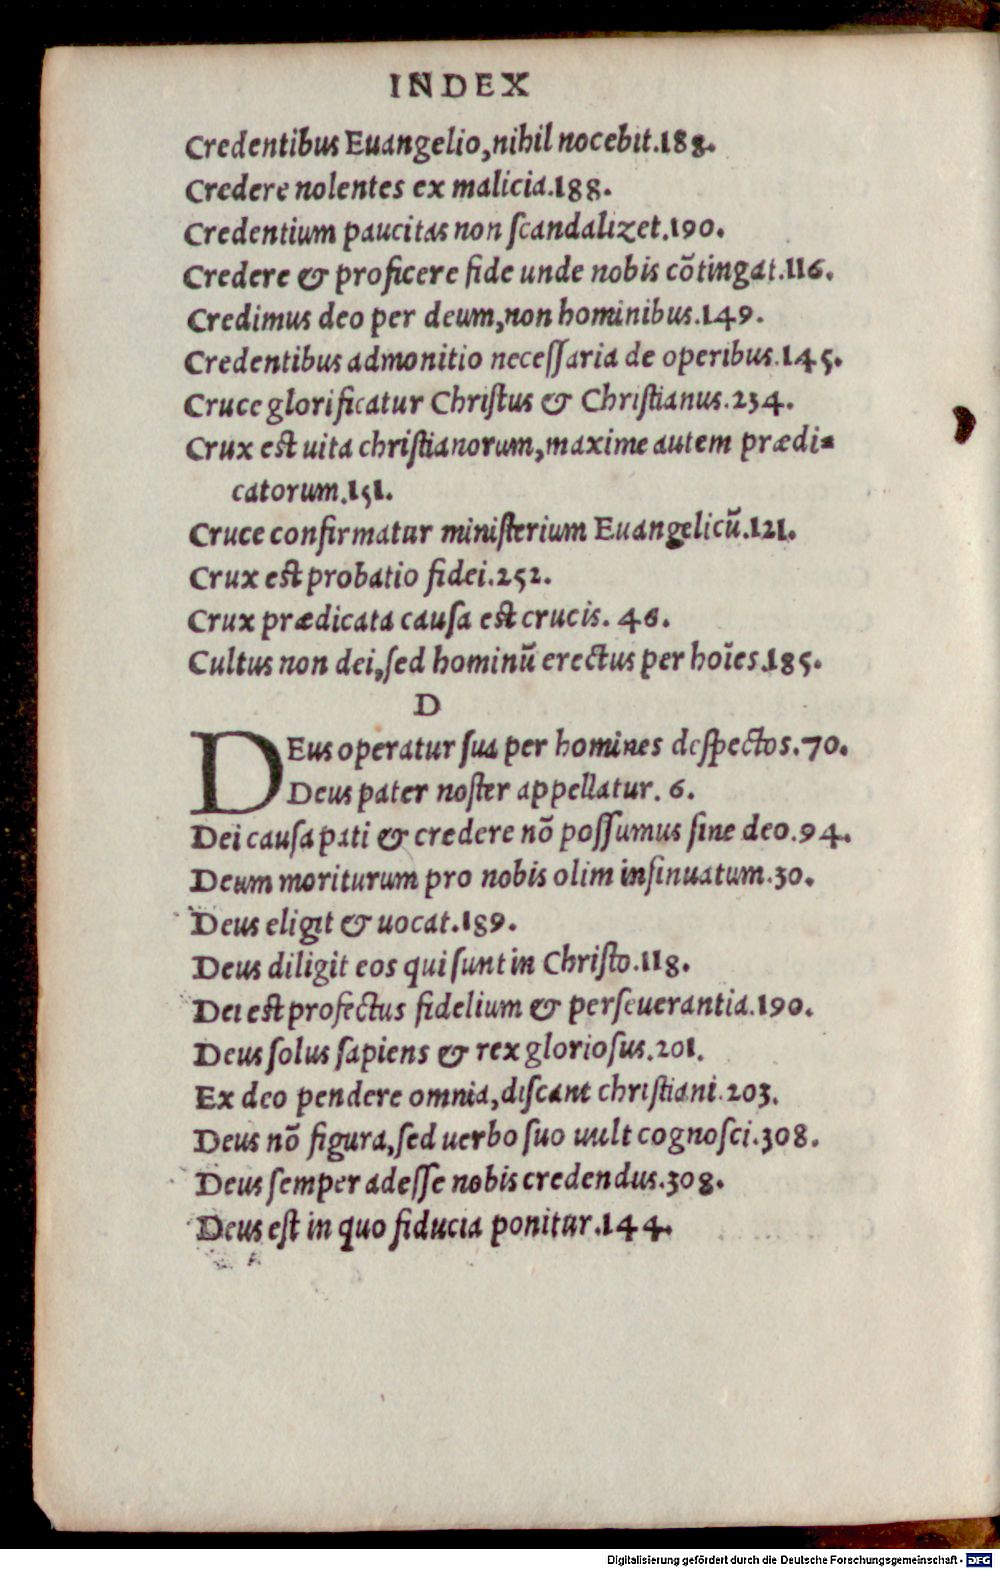 INDEX
Credentibus Euangelio,nihil nocebit.188.
Credere nolentes ex malicia.188.
Credentium paucitas non ſcandalizet.190.
Credere & proficere fide unde nobis cõtingat.116.
Credimus deo per deum,non hominibus.149.
Credentibus admonitio neceſſaria de operibus.145.
Cruce glorificatur Chriſtus & Chriſtianus.234.
Crux est uita chriſtianorum,maxime autem prædi⸗
catorum.151.
Cruce confirmatur miniſterium Euangelicũ.121.
Crux est probatio fidei.252.
Crux prædicata cauſa est crucis. 46.
Cultus non dei,ſed hominũ erectus per hoĩes.185.
D
DEus operatur ſua per homines deſpectos.70.
Deus pater noſter appellatur. 6.
Dei cauſa pati & credere nõ poſſumus ſine deo.94.
Deum moriturum pro nobis olim inſinuatum.30.
Deus eligit & uocat.189.
Deus diligit eos qui ſunt in Chriſto.118.
Dei est profectus fidelium & perſeuerantia.190.
Deus ſolus ſapiens & rex glorioſus.201.
Ex deo pendere omnia,diſcant chriſtiani.203.
Deus nõ figura,ſed uerbo ſuo uult cognoſci.308.
Deus ſemper adeſſe nobis credendus.308.
Deus eſt in quo fiducia ponitur.144.
Digitalisierung gefördert durch die Deutsche Forschungsgemeinschaft - DFG